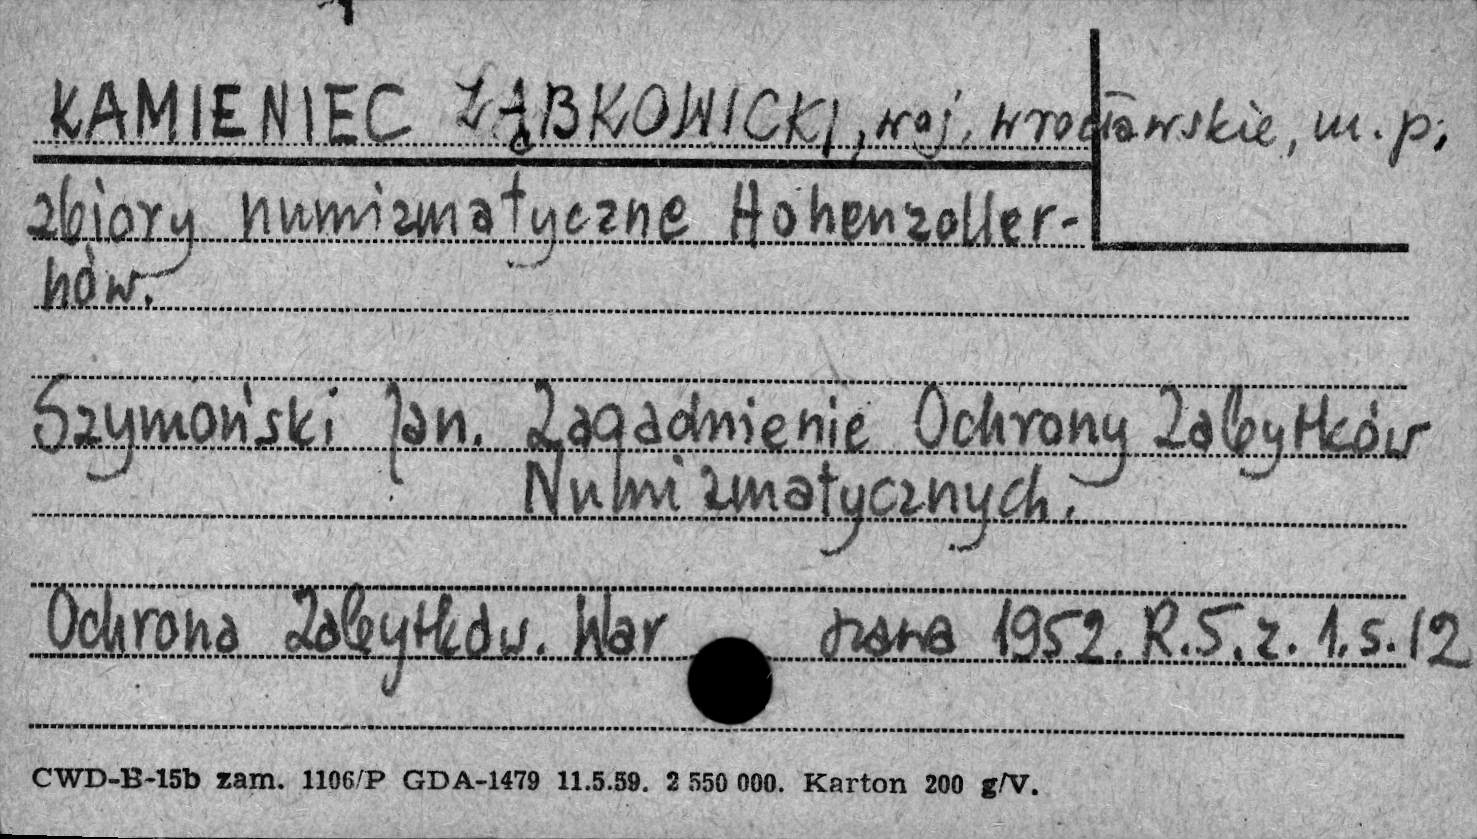 KAMIENIEC ZĄBKOWICKI, woj. wrocławskie, m.p;
zbiory numizmatyczne Hohenzoller-
nów.
Szymański Jan. Zagadnienie Ochrony Zabytków
Numizmatycznych.
Ochrona Zabytków. War szawa 1952. R.5. z. 1. s. 12
CWD-B-15b zam. 1106/P GDA-1479 11.5.59. 2 550 000. Karton 200 g/V.